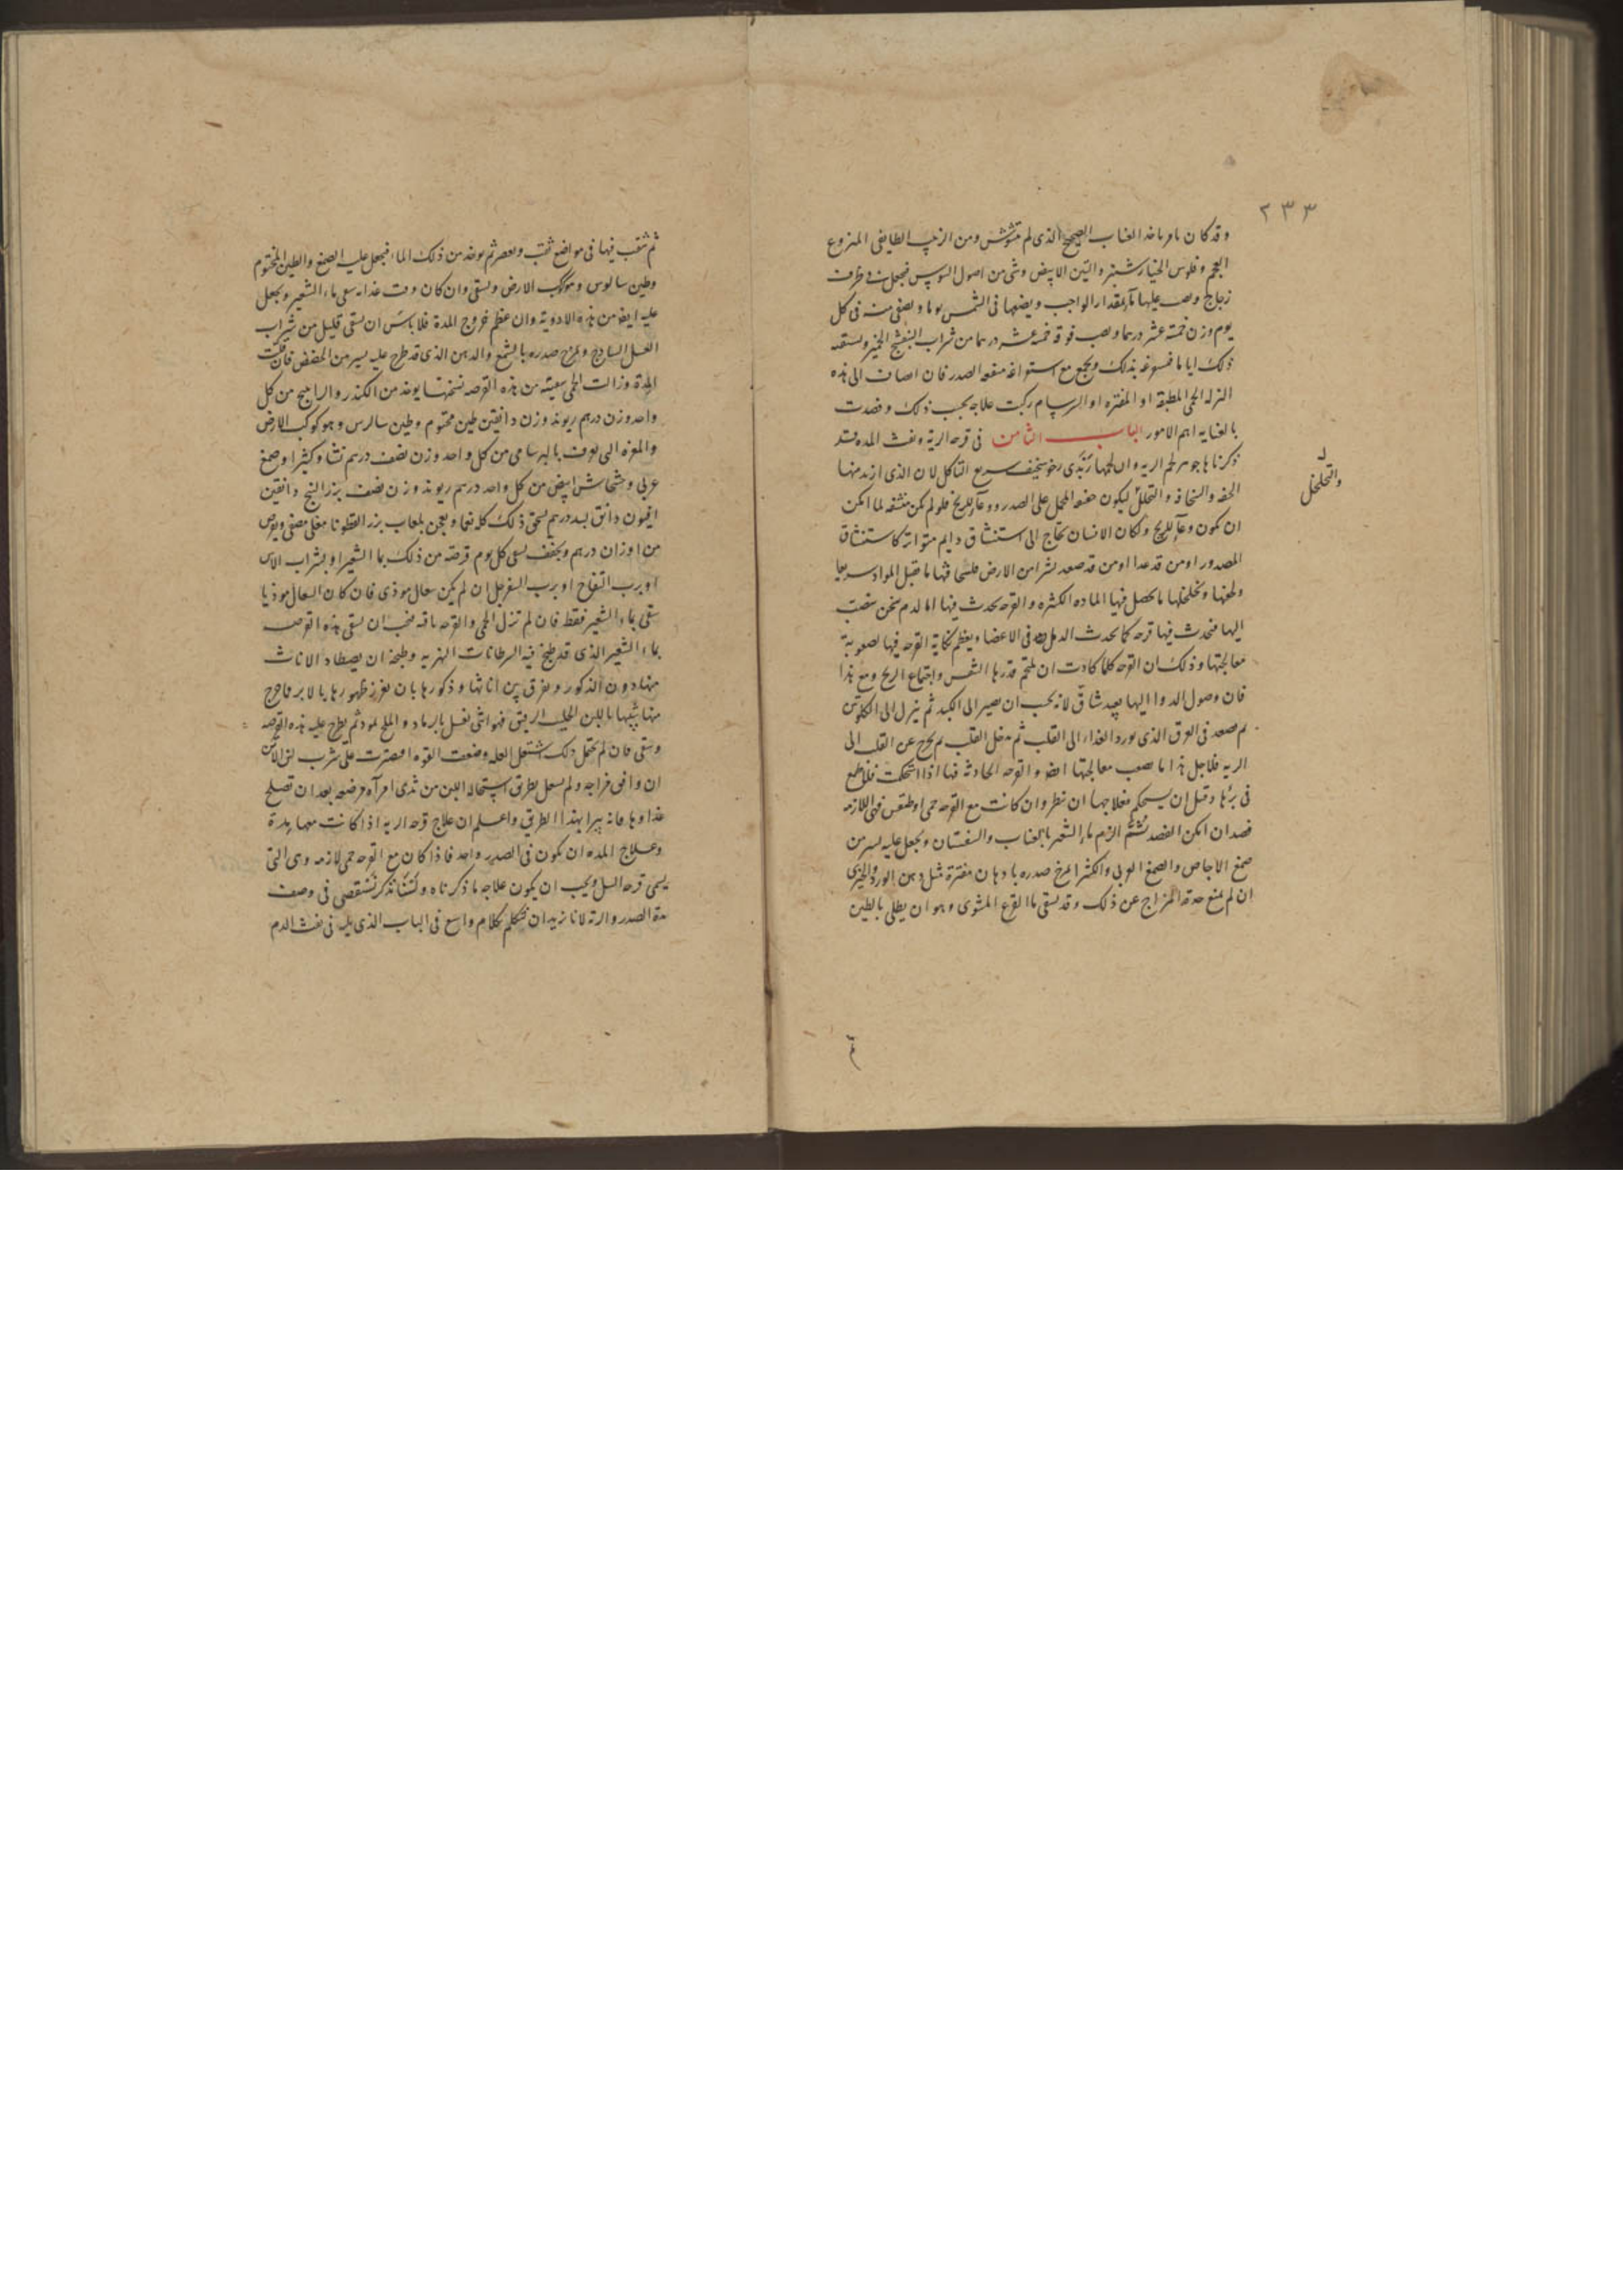 ٢٣٣
وقد كان يامر باخذ العناب الصحيح الذي لم يتشوش ومن الزبيب الطايفي المنزوع
العجم وفلوس الخيار شنبر والتين الابيض وشي من اصول السوس فيجعل في ظرف
زجاج ويصب عليها ما بمقدار الواجب ويضعها في الشمس يوما ويصفي منه في كل
يوم وزن خمسة عشر درهما ويصب فوقه خمسة عشر درهما من شراب البنفسج الخمير ويسقيه
ذلك اياما فيسوغه بذلك ويجمع مع استواغه منفعه الصدر فان اضاف الى هذه
النزله الحمى المطبقة او المفتره او السرسام ركبت علاجه بحسب ذلك وقصدت
بالعنايه اهم الامور الباب الثامن في قرحه الرية ونفث المده قد
ذكرنا ها جوهر لحم الريه وان لحمها زبدى رخو سخيف سريع التاكل لان الذي اريد منها
الخفه والسخافه والتخلل ليكون خفيف المحمل على الصدر ووعآ للريح فلو لم يكن متنفه لما امكن
ل
والتخلخل
ان يكون وعآ للريح ولكان الانسان يحتاج الى استنشاق دايم متواتر كاستنشاق
المصدور او من قد عدا او من قد صعد نشزا من الارض فلسخافتها ما تقبل المواد سريعا
ولعفنها وتخلخلها ما يحصل فيها الماده الكثيره والقرحه تحدث فيها اما لدم سخن ينصب
اليها فتحدث فيها قرحه كما يحدث الدمل في الاعضا ويعظم نكاية القرحه فيها لصعوبة
معالجتها وذلك ان القرحه كلما كادت ان تلتحم قدرها التنفس واجتماع الريح ومع هذا
فان وصول الدوا اليها بعيد شاق لانه يجب ان يصير الى الكبد ثم ينزل الى الكلوتين
ثم يصعد في العرق الذي يورد الغذاء الى القلب ثم يدخل القلب ثم يخرج عن القلب الى
الريه فلاجل هذا ما يصعب معالجتها ايضا والقرحه الحادثه فيها اذا استحكمت فلا طمع
في برئها وقبل ان يستحكم فعلاجها ان ينظر وان كانت مع القرحه حمى اوطيقس فهي اللازمه
فصد ان امكن الفصد ثم الزم ماء الشعير بالعناب والسفستان ويجعل عليه يسير من
صمغ الاجاص والصمغ العربي والكثيرا ومرخ صدره بادهان مفترة مثل دهن الورد والخيري
ان لم يمنع حدة المزاج عن ذلك وقد يسقى ما القرع المشوى وهو ان يطلى بالطين
ثم
ثم تثقب فيها في مواضع ثقب وتعصر ثم يوخذ من ذلك الماء فيجعل عليه الصمغ والطين المختوم
وطين سالوس وهو كوكب الارض ويسقى وان كان وقت غذايه سقى ماء الشعير ويجعل
عليه ايضا من هذه الادويه وان عظم خروج المدة فلا باس ان يسقى قليل من شراب
العسل الساذج ويمرخ صدره بالشمع والدهن الذي قد طرح عليه يسير من الحضض فان قلت
المدة وزالت الحمى سقيته من هذه القرصه نسختها يوخذ من الكندر والراسح من كل
واحد وزن درهم ريوند وزن دانقين طين مختوم وطين سالوس وهو كوكب الارض
والمغره التي تعرف بالبرسامي من كل واحد وزن نصف درهم نشا وكثيرا وصمغ
عربي وخشخاش ابيض من كل واحد درهم ريوند وزن نصف بزر البنج دانقين
افيون دانق بسد درهم يسحق ذلك كله نعما ويعجن بلعاب بزر القطونا مغلي مصفى ويقرص
من اوزان درهم ويجفف يسقى كل يوم قرصه من ذلك بما الشعير او بشراب الاس
او برب التفاح او برب السفرجل ان لم يكن سعال موذي فان كان السعال موذيا
سقى بماء الشعير فقط فان لم تزل الحمى والقرحه باقيه فيجب ان يسقى هذه القرصه
بماء الشعير الذي قد طبخ فيه السرطانات النهريه وطبخه ان يصطاد الاناث
منها دون الذكور ويفرق بين اناثها وذكورها بان يغرز ظهورها بالابر فما خرج
منها شبيها باللبن الحليب الرقيق فهو انثى يغسل بالرماد والملح ثم يطرح عليه هذه القرصه
ويسقى فان لم يحتمل ذلك اشتعال العله وضعف القوه اقتصرت على شرب لبن الاتن
ان وافق مزاجه ولم يسهل بطريق استحاله اللبن من ثدى امرآه مرضعه بعد ان تصلح
غذاوها فانه يبرا بهذا الطريق واعلم ان علاج قرحه الريه اذا كانت معها مدة
وعلاج المده ان يكون في الصدر واحد فاذا كان مع القرحه حمى لازمه وهي التي
يسمى قرحه السل ويجب ان يكون علاجه ما ذكرناه ولسنا نذكر نستقصى في وصف
مدة الصدر والرئة لانا نريد ان نتكلم بكلام واسع في الباب الذي يليه في نفث الدم